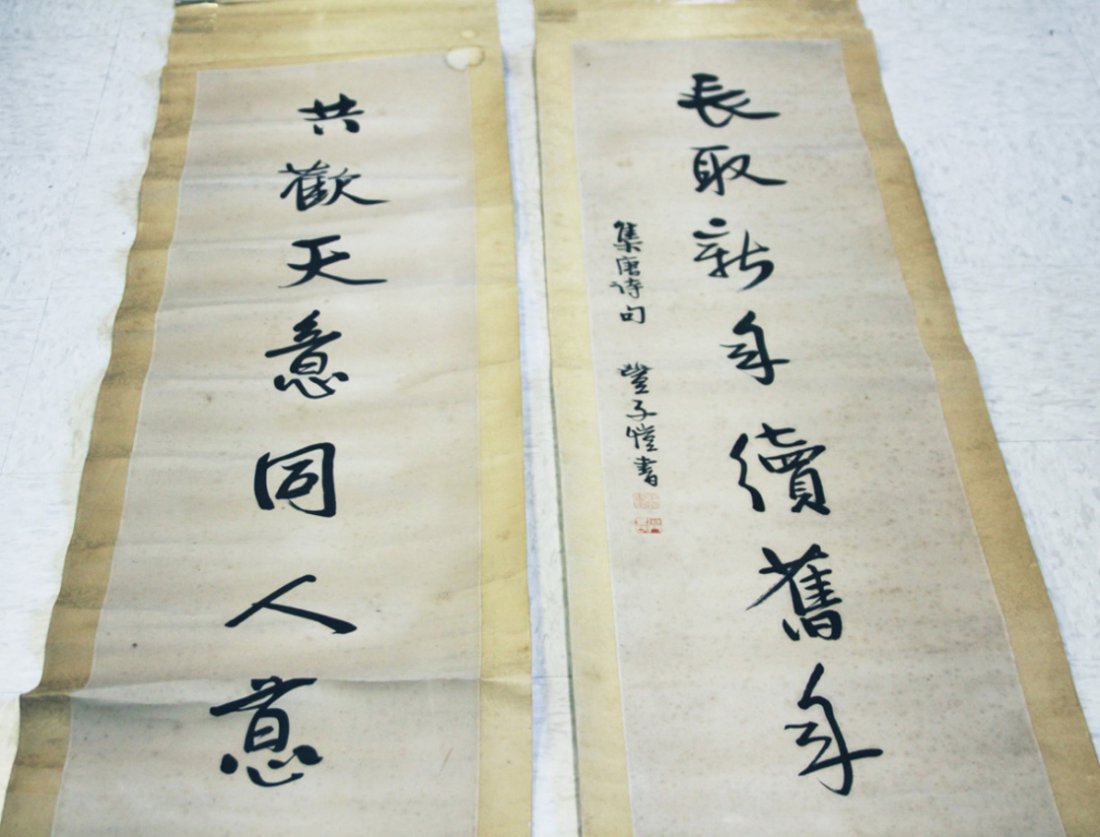 共歡天意同人意
長取新年續舊年
集唐詩句 豐子愷書